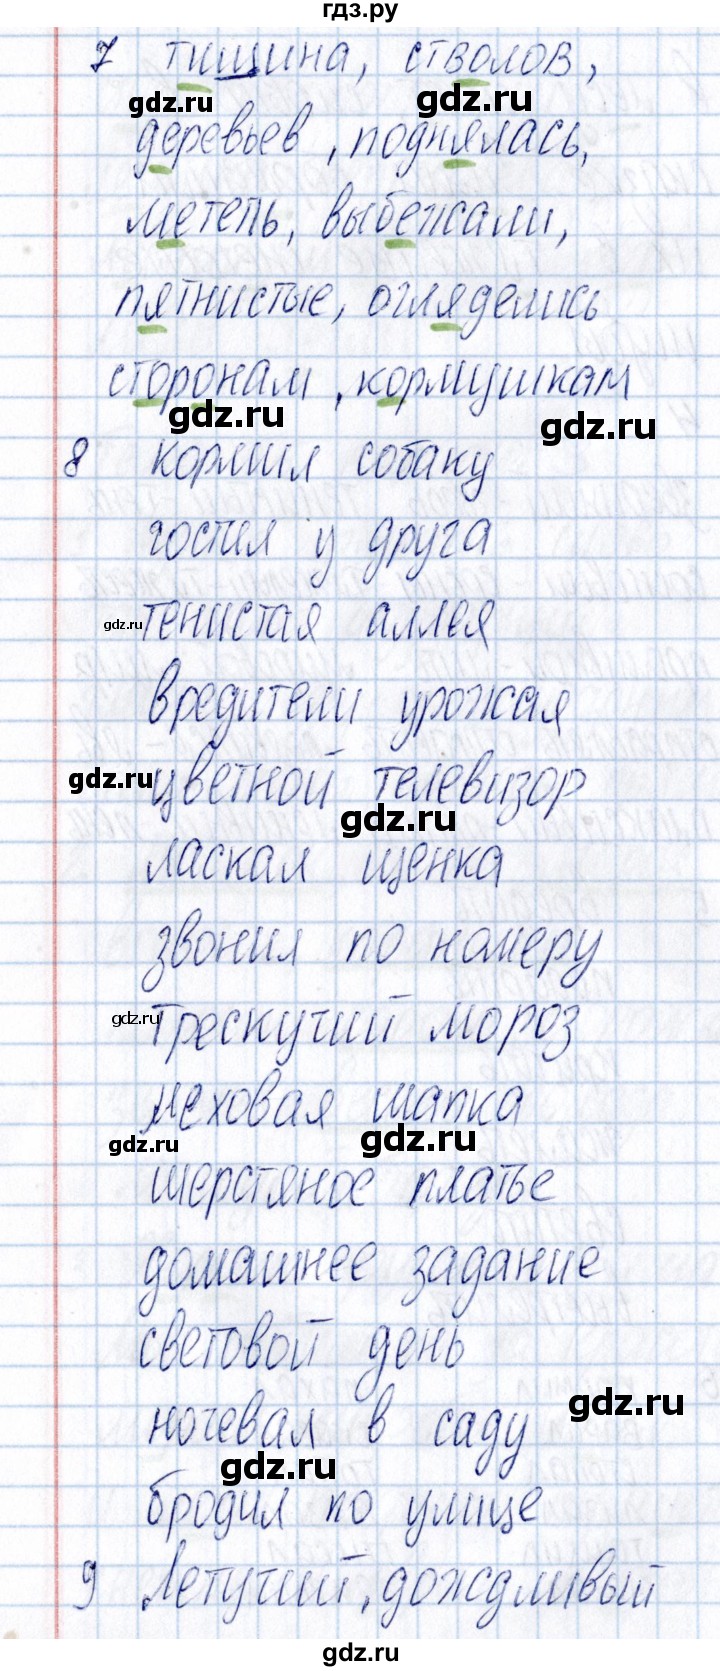 гдз.ру
7 тишина, стволов,
gdz.ru gdz.ru
деревьев, поднялась,
gdz.ru
метель, выбежали,
gdz.ru
пятнистые, огляделись
gdz.ru
сторонам, кормушкам
gdz.ru gdz.ru
8 кормил собаку
гостил у друга
gdz.ru тенистая аллея
вредители урожая
gdz.ru цветной телевизор
gdz.ru
ласкал щенка
звонил по номеру
gdz.ru трескучий мороз
меховая шапка
gdz.ru gdz.ru
шерстяное платье
домашнее задание
световой день
gdz.ru
ночевал в саду
gdz.ru
бродил по улице
9 Летучий, дождливый
gdz.ru